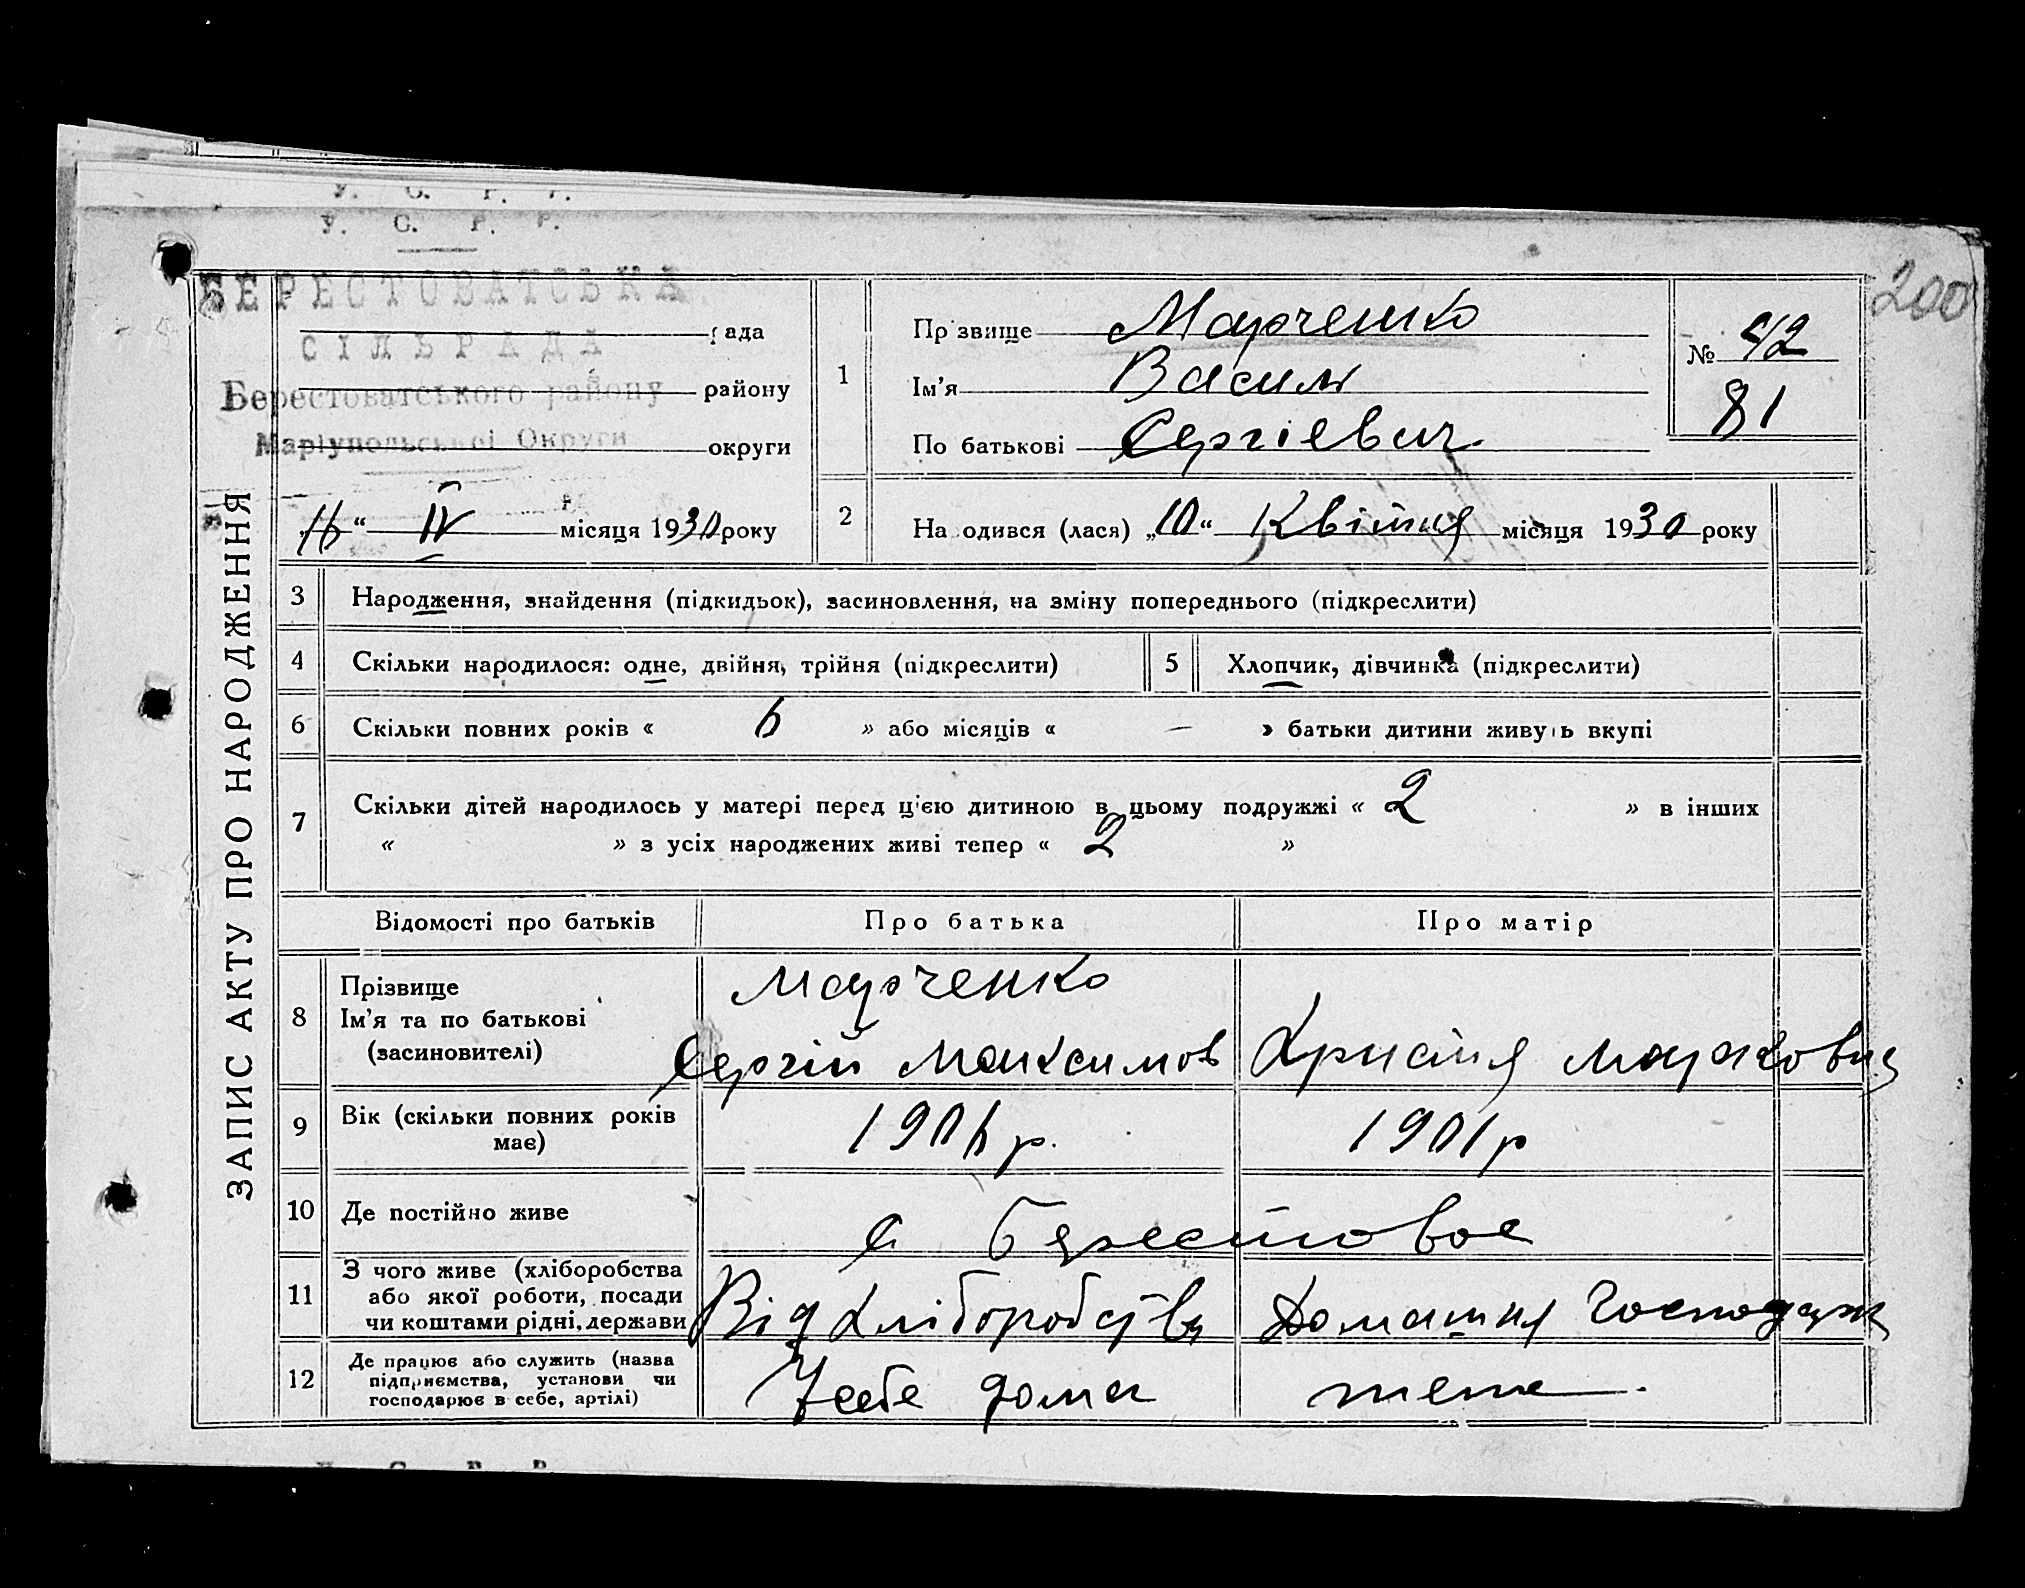 У. С. Р. Р.
У. С. Р. Р.
200
БЕРЕСТОВАТСЬКА
рада
СІЛЬРАДА
Берестоватського району
району
Маріупольської Округи
округи
„16“ IV місяця 1930 року
1
Прізвище Марченко
Ім'я Василь
По батькові Сергієвич
№ 42
81
2
Народився (лася) „10“ Квітня місяця 1930 року
ЗАПИС АКТУ ПРО НАРОДЖЕННЯ
3 Народження, знайдення (підкидьок), засиновлення, на зміну попереднього (підкреслити)
4 Скільки народилося: одне, двійня, трійня (підкреслити)
5 Хлопчик, дівчинка (підкреслити)
6 Скільки повних років « 6 » або місяців « — » батьки дитини живуть вкупі
7 Скільки дітей народилось у матері перед цією дитиною в цьому подружжі « 2 » в інших
« » з усіх народжених живі тепер « 2 »
Відомості про батьків
Про батька
Про матір
8 Прізвище
Ім'я та по батькові
(засиновителі)
Марченко
Сергій Максимов
Христия Марковна
9 Вік (скільки повних років
має)
1906 р.
1901 р
10 Де постійно живе
с Берестовое
11 З чого живе (хліборобства
або якої роботи, посади
чи коштами рідні, держави
Від хліборобства
Домашня Господарк
12 Де працює або служить (назва
підприємства, установи чи
господарює в себе, артілі)
У себе дома
теж
У. С. Р. Р.